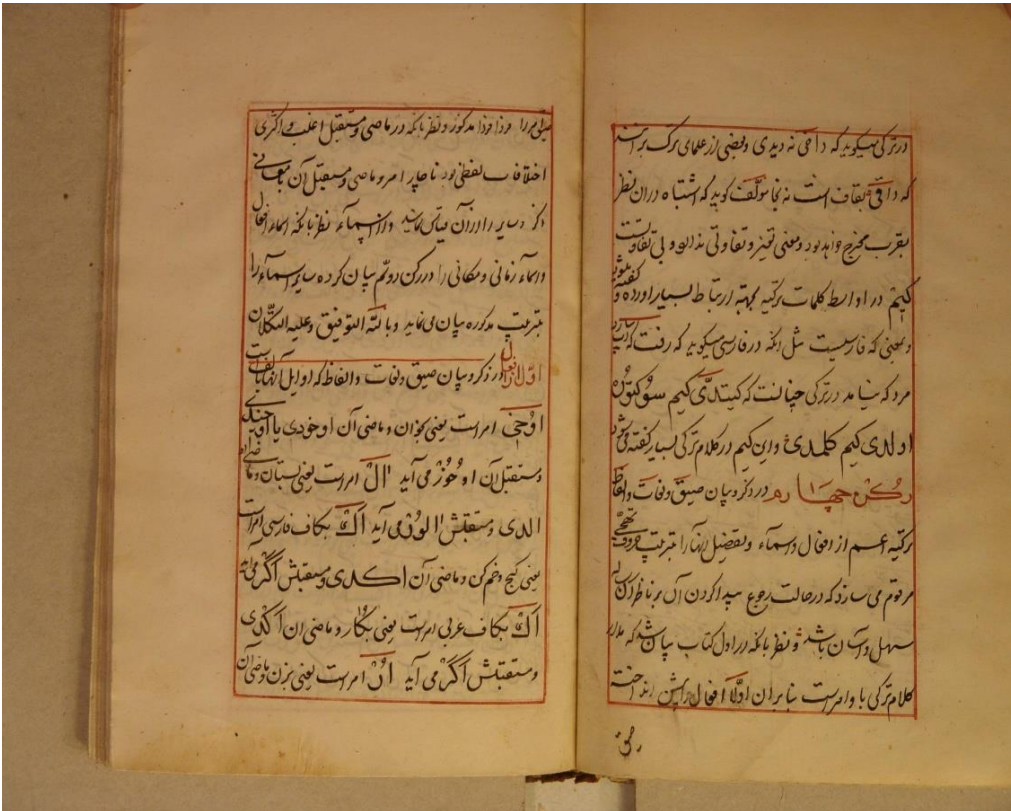 در ترکی میگوید که داقی نه دیدی و بعضی از علمای ترک برآنند
که داقی بقاف است نه بخا مؤلف گوید که اشتباه در آن نظر
بقرب مخرج خواهد بود و معنی تمیز و تفاوتی ندارد و بی تفاوتست
کیم در اواسط کلمات ترکیه بجهة ارتباط بسیار آورده و گفته میشود
و بمعنی که فارسیست مثل آنکه در فارسی میگوید که رفت که
مرد که نیامد در ترکی چنانست که کیتدی کیم سو کتوره
اولدی کیم کلمدی و این کیم در کلام ترکی بسیار گفته می شود
رکن چهارم در ذکر و بیان صیق و لغات و الفاظ
ترکیه اعم از افعال و اسماء و بتفصیل اینها را بترتیب حروف تهجی
مرقوم می سازد که در حالت رجوع پیدا کردن آن بر ناظران
سهل و آسان باشد و نظر بآنکه در اول کتاب بیان شد که مدار
کلام ترکی با امر است بنابر آن اولا افعال را پیش انداخته
صیق
را فردا فردا مذکور و نظر بآنکه در ماضی و مستقبل اغلب و اکثری
اختلاف لفظی بود ناچار امر و ماضی و مستقبل آن با معانی
ذکر و سایر را در آن قیاس نمایند و از اسماء نظر بآنکه اسماء افعال
و اسماء زمانی و مکانی را در رکن دویم بیان کرده سایر اسماء را
بترتیب مذکوره بیان می نماید و بالله التوفیق و علیه التکلان
اولا از افعال در ذکر و بیان صیق و لغات و الفاظ که اوایل آنها الف است
اوخی امر است یعنی بخوان و ماضی آن اوخودی یا اوخیدی
و مستقبل آن اوخور می آید ال امر است یعنی بستان و ماضی
الدی و مستقبلش الور می آید اک بکاف فارسی امر است
یعنی کج و خم کن و ماضی آن اکدی و مستقبلش اکر می آید
اک بکاف عربی امر است یعنی بکار و ماضی آن اکدی
و مستقبلش اکر می آید ار امر است یعنی بزن و ماضی آن